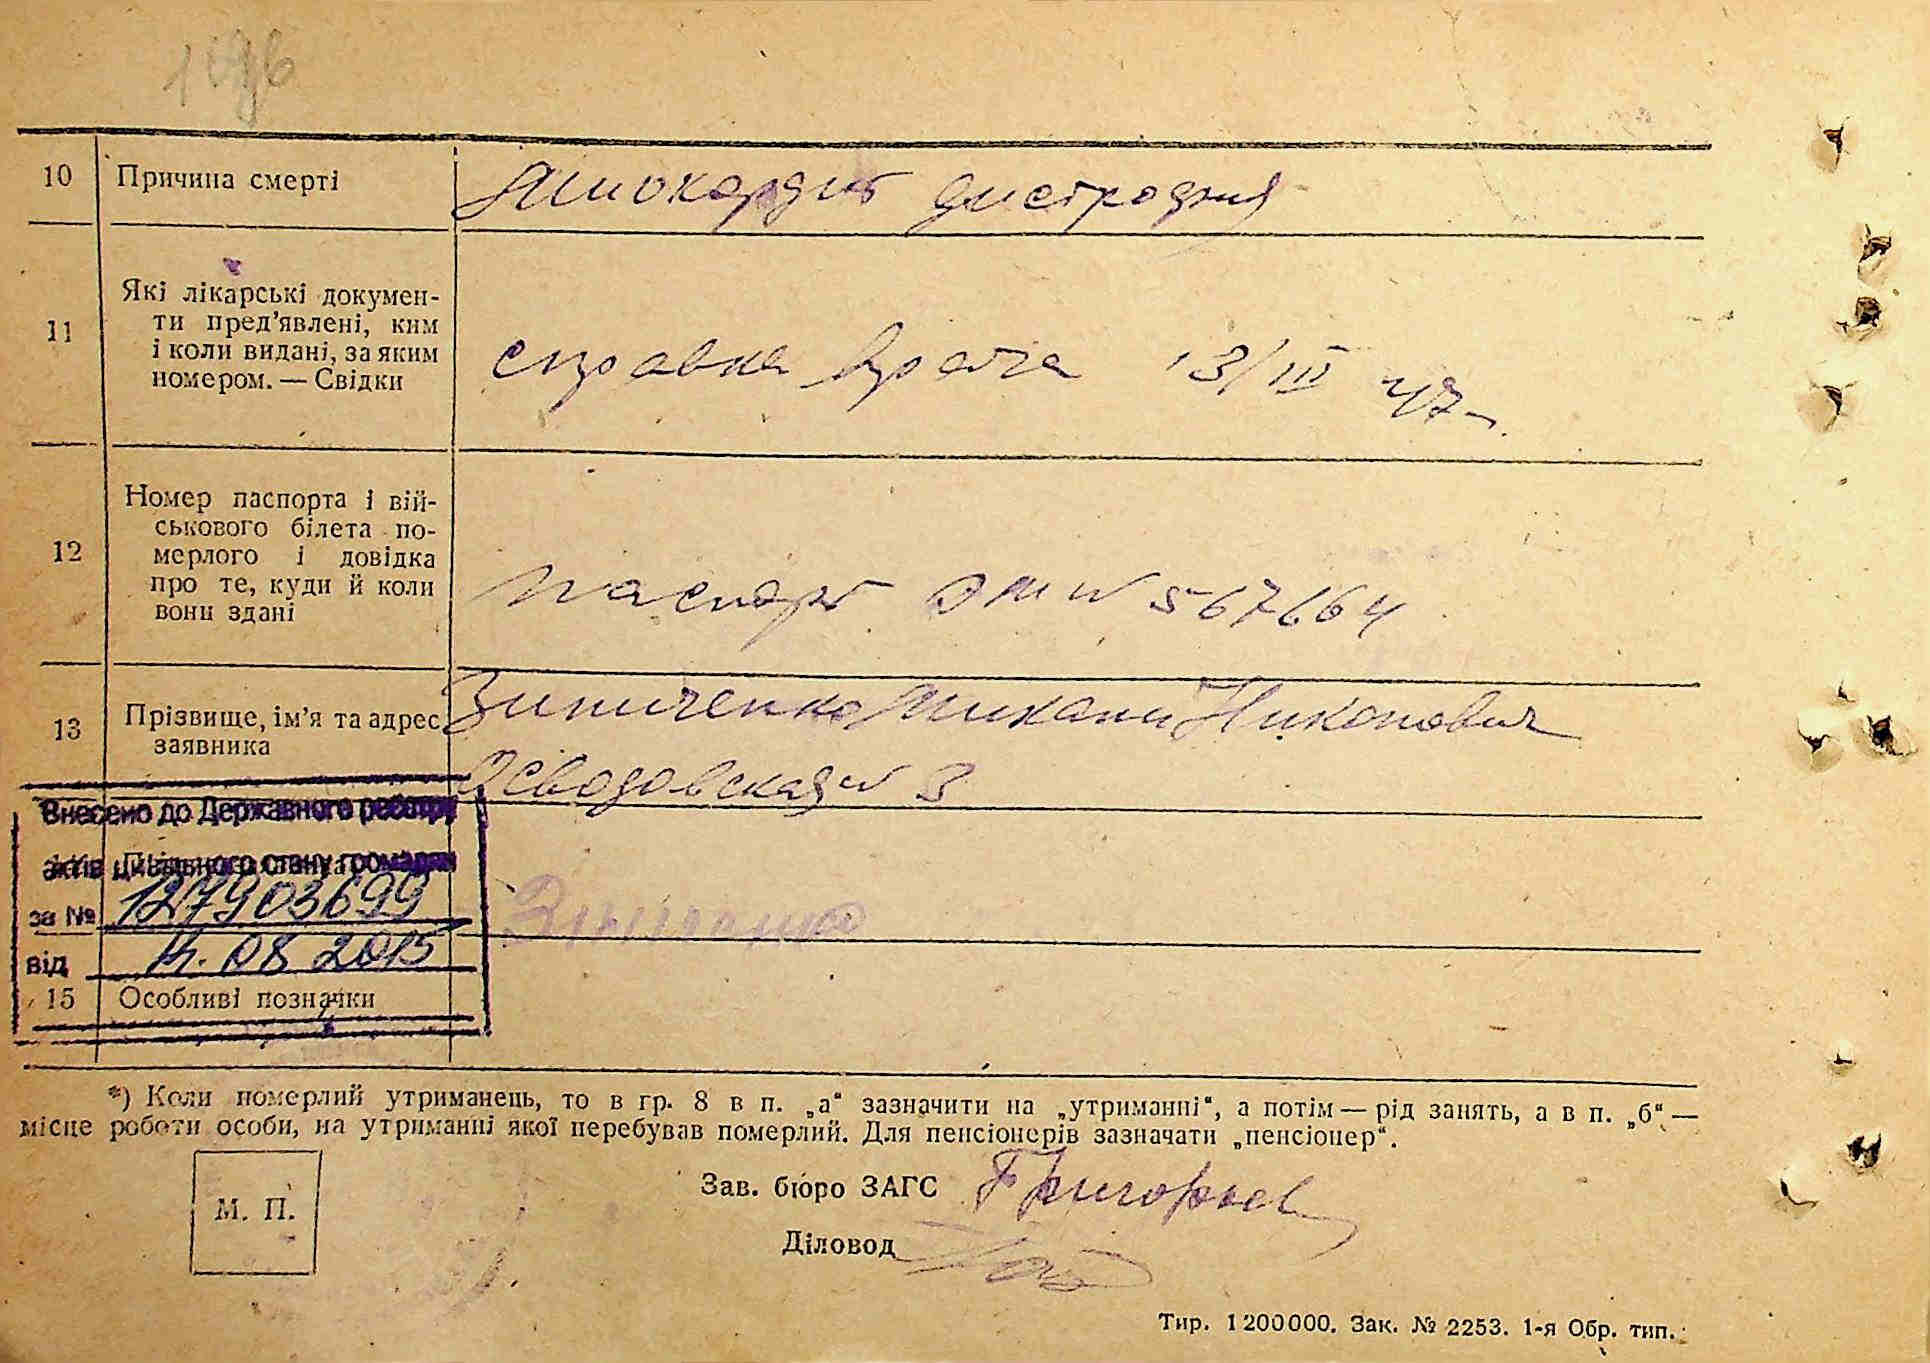 10 Причина смерті Миокардит дистрофия
11 Які лікарські докумен-
ти пред'явлені, ким
і коли видані, за яким
номером. — Свідки
справка врача 13/III 47
12 Номер паспорта і вій-
ськового білета по-
мерлого і довідка
про те, куди й коли
вони здані
паспорт № 567664
13 Прізвище, ім'я та адрес
заявника
Зинченко Михаил Никонович
№ 3
Внесено до Державного реєстру
актів цивільного стану громадян
за № 127903699
від 14.08 2015
Зинченко
15 Особливі позначки
*) Коли померлий утриманець, то в гр. 8 в п. „а“ зазначити на „утриманні“, а потім — рід занять, а в п. „б“ —
місце роботи особи, на утриманні якої перебував померлий. Для пенсіонерів зазначати „пенсіонер“.
М. П.
Зав. бюро ЗАГС Григорьев
Діловод
Тир. 1200000. Зак. № 2253. 1-я Обр. тип.